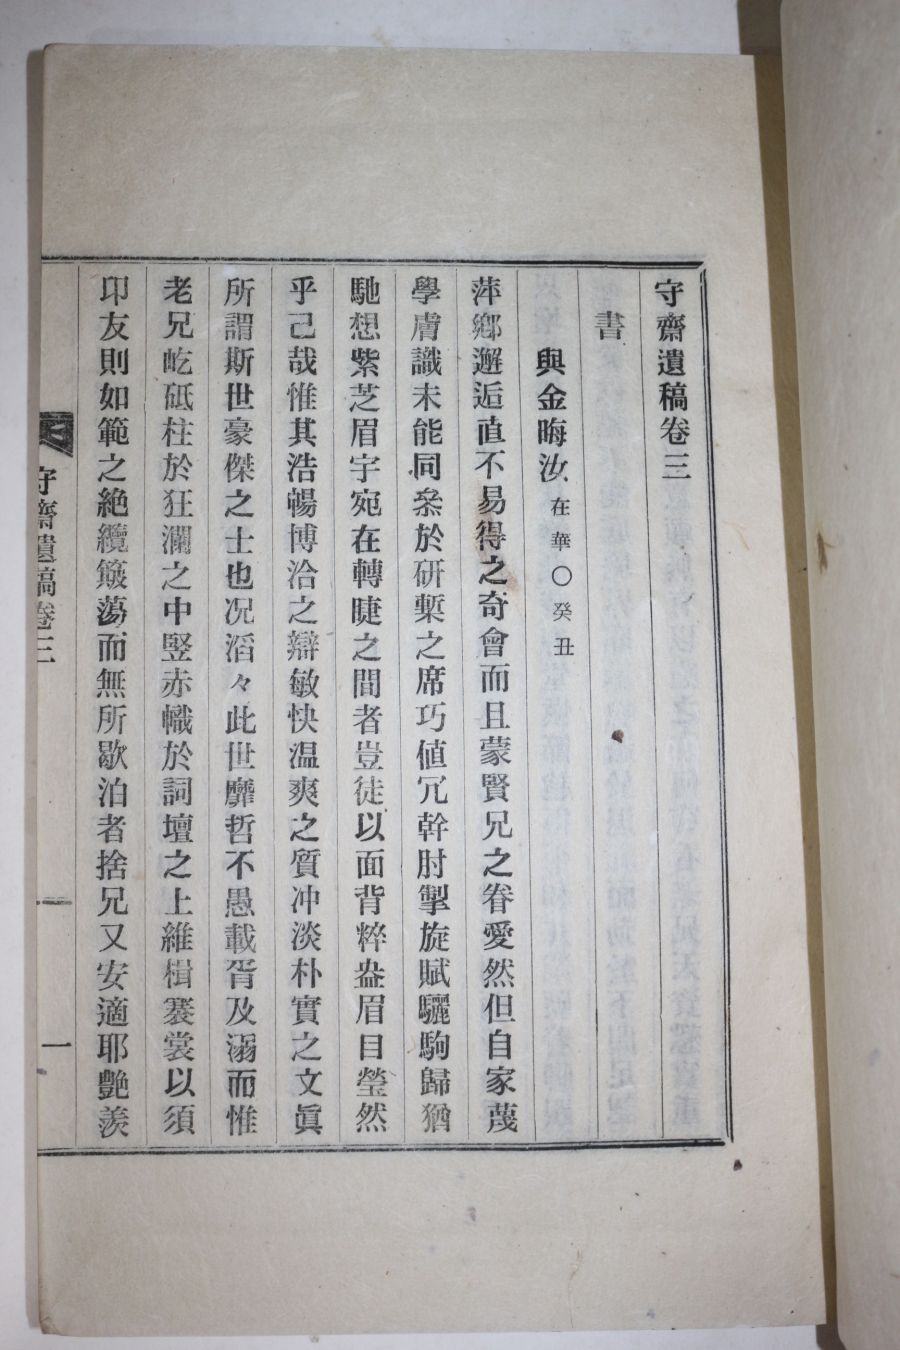 守齋遺稿卷三
書
與金晦汝 在華〇癸丑
萍鄉邂逅直不易得之奇會而且蒙賢兄之眷愛然但自家蔑
學膚識未能同叅於研槧之席巧値冗幹肘掣旋賦驪駒歸猶
馳想紫芝眉宇宛在轉睫之間者豈徒以面背粹盎眉目瑩然
乎己哉惟其浩暢博洽之辯敏快温爽之質冲淡朴實之文眞
所謂斯世豪傑之士也况滔々此世靡哲不愚載胥及溺而惟
老兄屹砥柱於狂瀾之中竪赤幟於詞壇之上維楫褰裳以須
卬友則如範之絶纜簸蕩而無所歇泊者捨兄又安適耶艶羨
守齋遺稿卷三
一